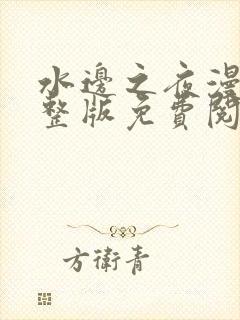 水邊之夜漫
整版免費閱
方衛青